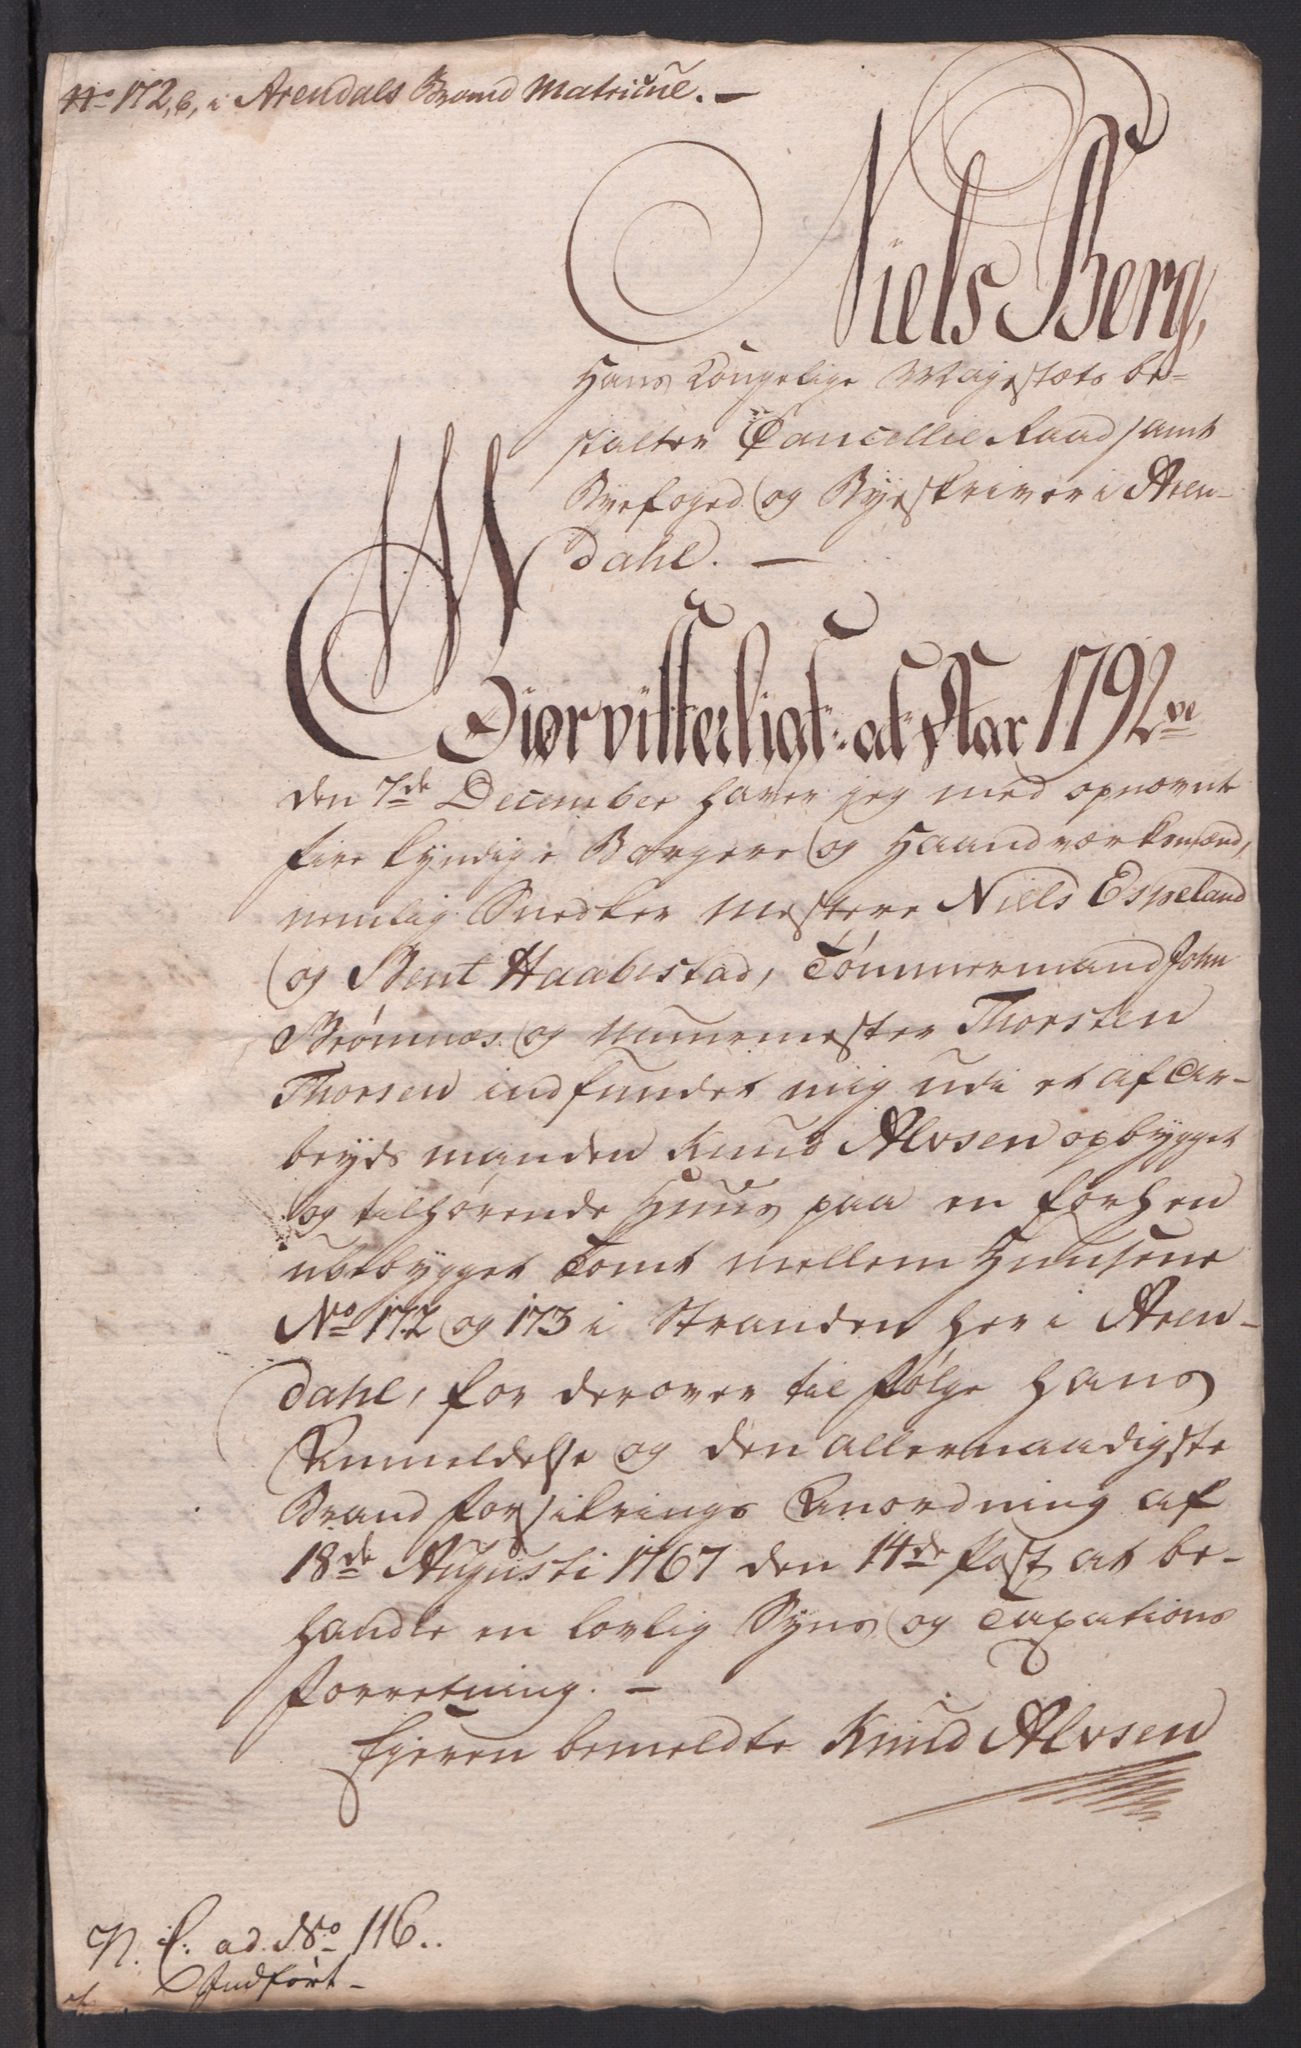 No 172, b, i Arendals Brand Matricul. —
Niels Berg,
Hans Kongelige Mayestæts be-
stalter Cancellie Raad samt
Byefoged og Byeskriver i Aren-
dahl. —
Giør vitterligt: at Aar 1792ve
den 7de December haver jeg med opnævnte
fire kyndige Borgere og Haandværksmænd,
nemlig Snedker Mestere Niels Espeland
og Bent Haabestad, Tømmermand John
Strømnæs og Muurmester Thorsten
Thorsen indfundet mig udi et af Ar-
beyds manden Knud Alvsen opbygget
og tilhørende Huus paa en forhen
ubebygget Tomt mellem Huusene
No 172 og 173 i Stranden her i Aren-
dahl, for derover til følge hans
Anmeldelse og den allernaadigste
Brand forsikrings Anordning af
18de Augusti 1767 den 14de Post at be-
handle en lovlig Syns og Taxations
forretning. —
Ejeren bemeldte Knud Alvsen
N. C. ad. No 116..
Indført —